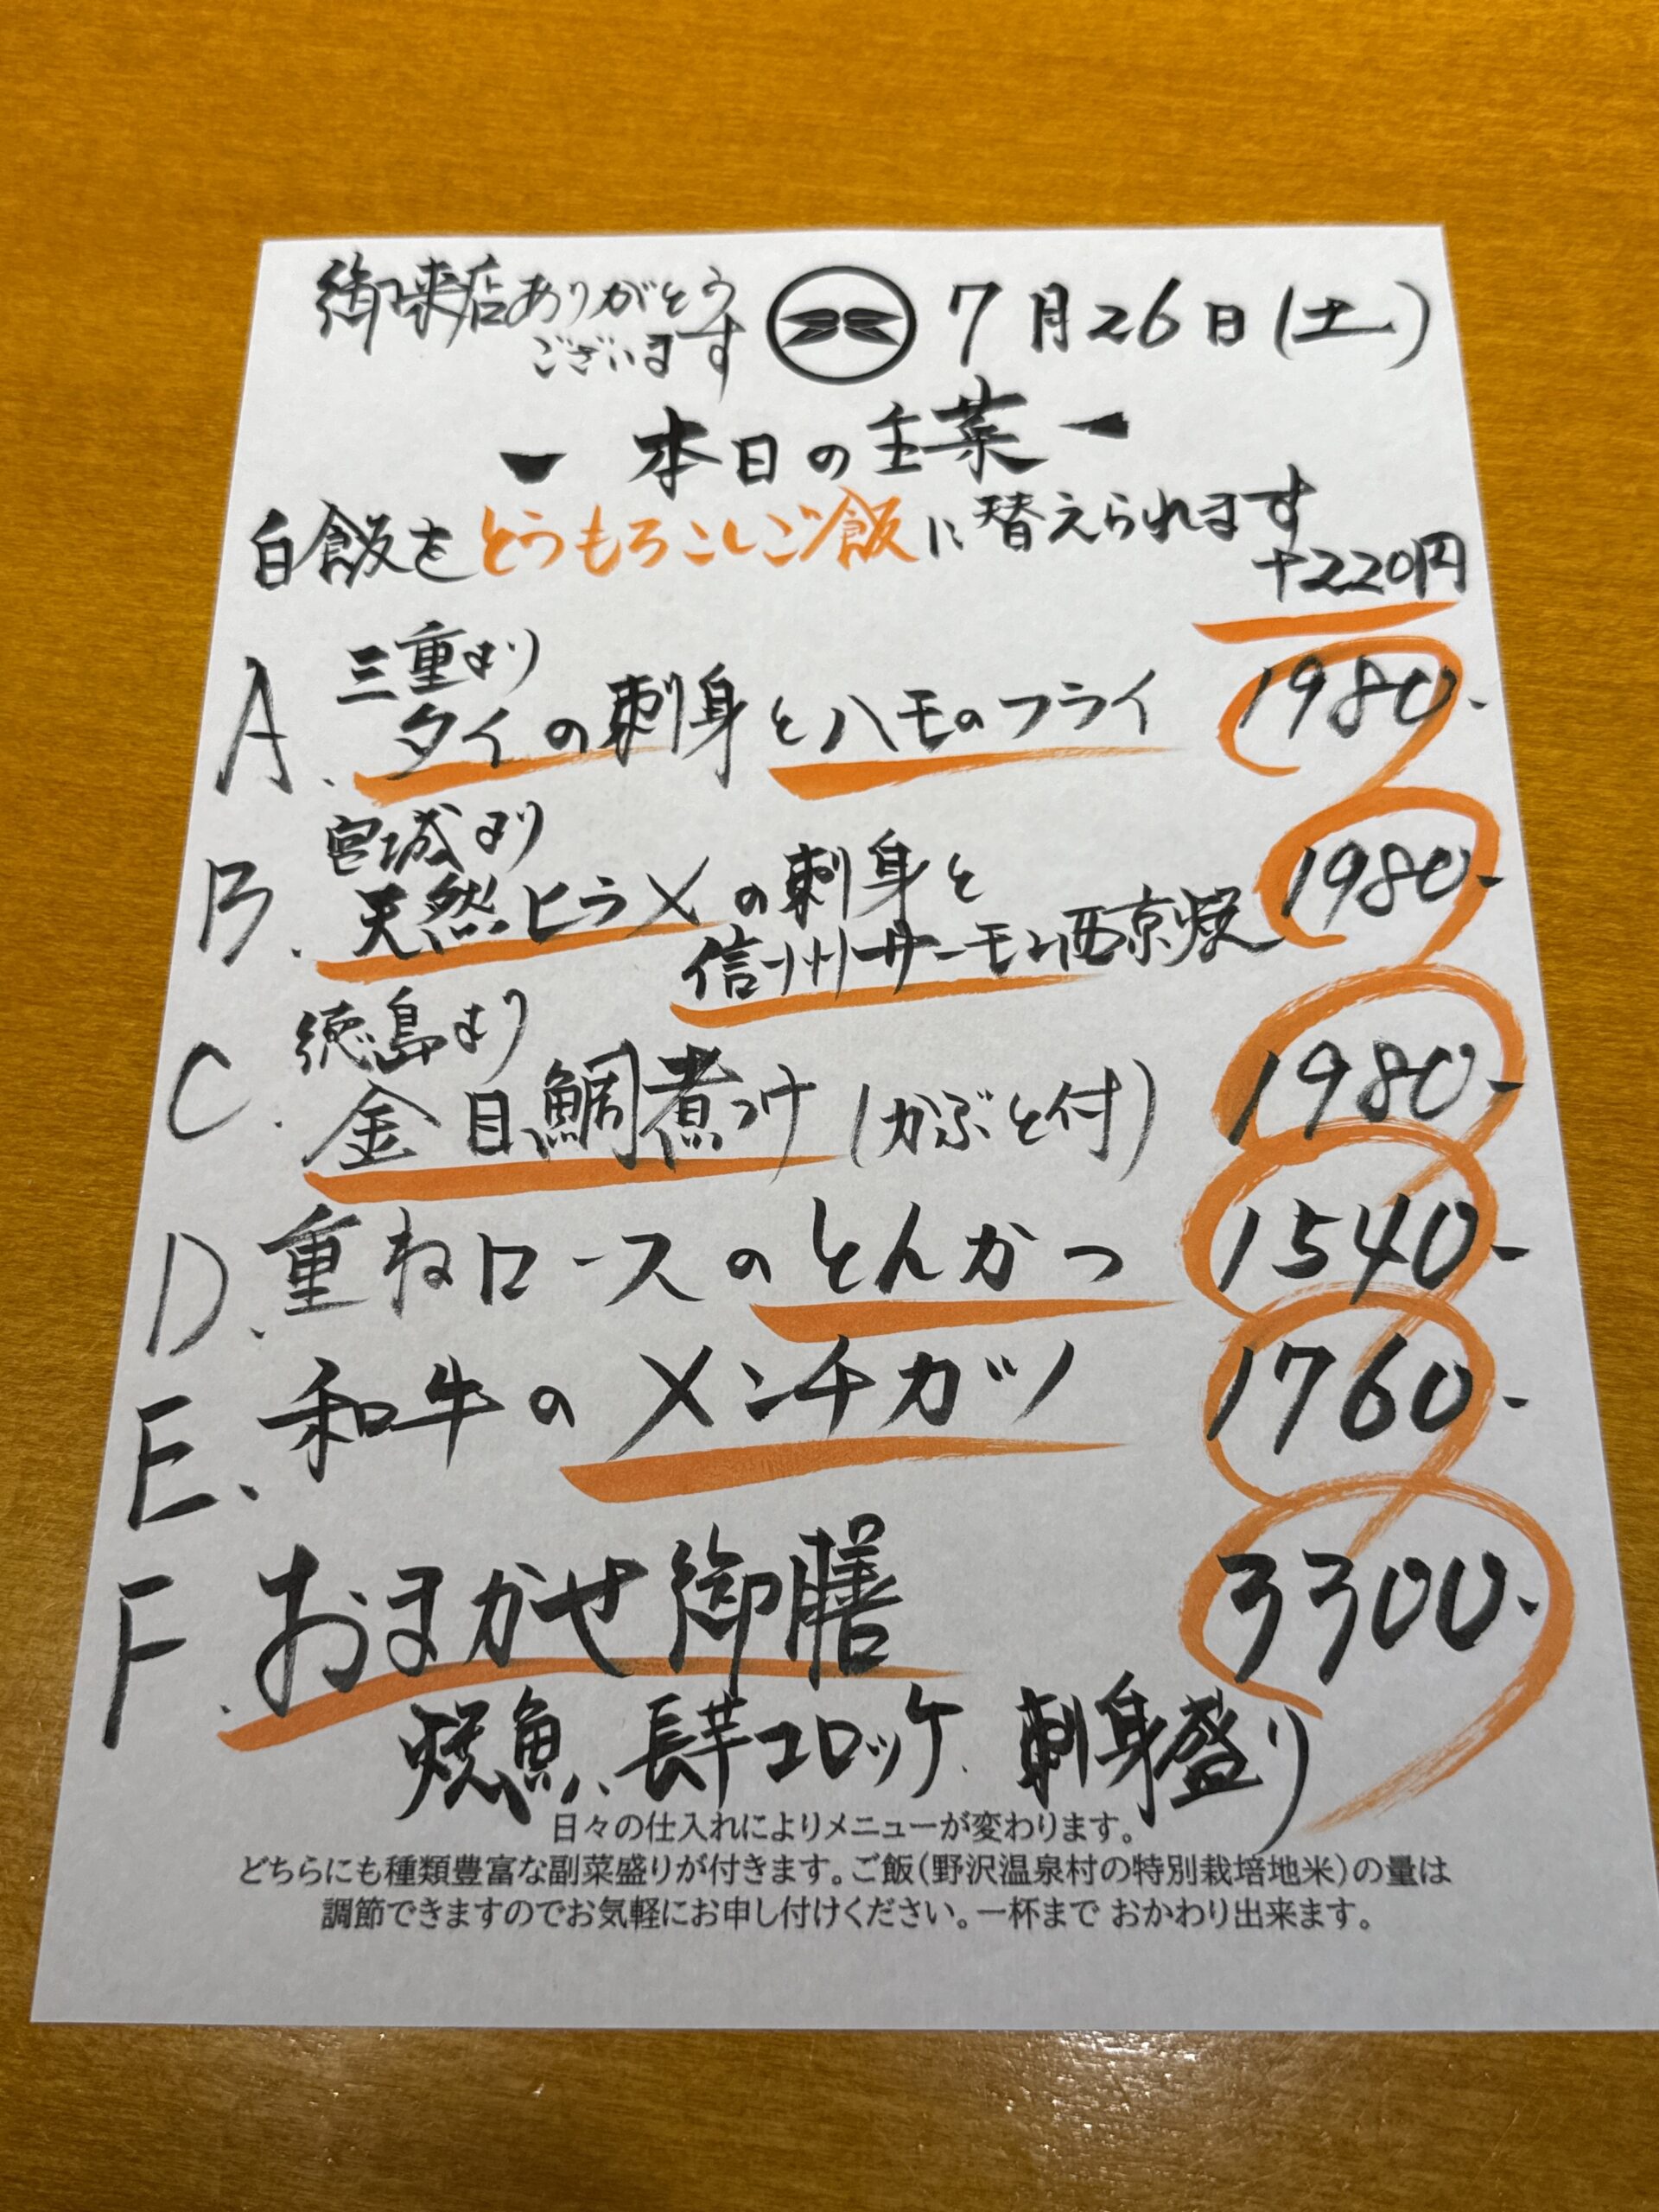 御来店ありがとう
ございます
7月26日(土)
ー 本日の主菜 ー
白飯をとうもろこしご飯に替えられます
+220円
三重より
A. タイの刺身とハモのフライ 1980-
宮城より
B. 天然ヒラメの刺身と
信州サーモン西京焼 1980-
徳島より
C. 金目鯛煮つけ(かぶと付) 1980-
D. 重ねロースのとんかつ 1540-
E、和牛のメンチカツ 1760-
F. おまかせ御膳 3300-
焼魚、長芋コロッケ、刺身盛り
日々の仕入れによりメニューが変わります。
どちらにも種類豊富な副菜盛りが付きます。ご飯(野沢温泉村の特別栽培地米)の量は
調節できますのでお気軽にお申し付けください。一杯まで おかわり出来ます。